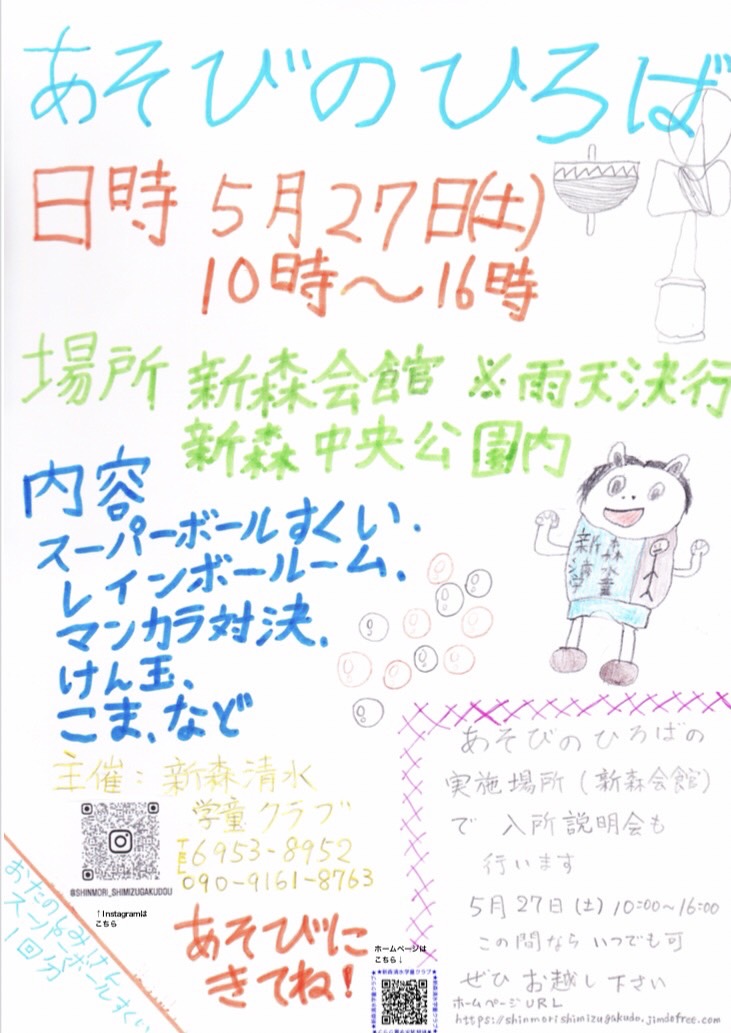 あそびのひろば
日時 5月27日(土)
10時〜16時
場所 新森会館 ※雨天決行
新森中央公園内
内容
スーパーボールすくい、
レインボールーム、
マンカラ対決、
けん玉、
こま、など
新森
清水
学童
主催:新森清水
学童クラブ
TEL 6953-8952
090-9161-8763
@SHINMORI_SHIMIZUGAKUDOU
↑Instagramは
こちら
おたのしみけん
スーパーボールすくい
1回分
あそびに
きてね!
ホームページは
こちら↓
あそびのひろばの
実施場所(新森会館)
で 入所説明会も
行います
5月27日(土)10:00〜16:00
この間なら いつでも可
ぜひ お越し下さい
ホームページURL
https://shinmorishimizugakudo.jimdofree.com